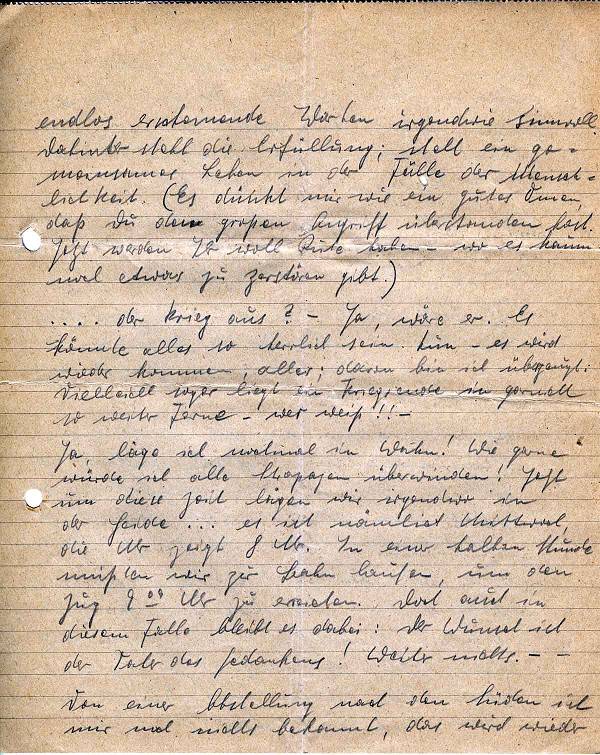 endlos erscheinende Warten irgendwie sinnvoll.
Dahinter steht die Erfüllung; steht ein ge-
meinsames Leben in der Fülle der Mensch-
lichkeit. (Es dünkt mir wie ein gutes Omen,
daß Du den großen Angriff überstanden hast.
Jetzt werden Ihr wohl Ruhe haben – wo es kaum
mal etwas zu zerstören gibt.)
.... der Krieg aus? – Ja, wäre er. Es
könnte alles so herrlich sein. Nun – es wird
wieder kommen, alles; davon bin ich überzeugt.
Vielleicht sogar liegt ein Kriegsende in garnicht
so weiter Ferne – wer weiß!! –
Ja, läge ich nochmal in! Wie gerne
würde ich alle Strapazen überwinden! Jetzt
um diese Zeit lägen wir irgendwo in
der Heide ... es ist nämlich Mittwoch,
die Uhr zeigt 8 Uhr. In einer halben Stunde
müßten wir zur Bahn laufen, um den
Zug 9 00 Uhr zu erreichen. Doch auch in
diesem Falle bleibt es dabei: Der Wunsch ist
der Vater des Gedankens! Weiter nichts. – –
Von einer Abstellung nach dem Süden ist
mir noch nichts bekannt, das wird wieder